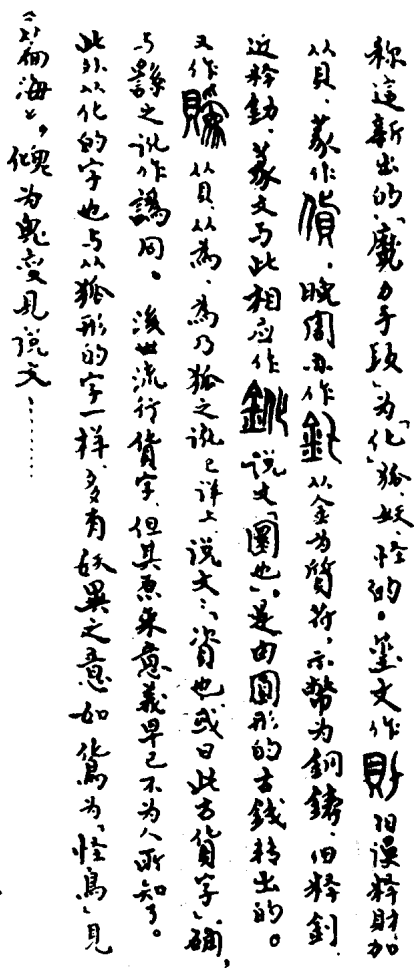 称这新出的「魔力手段」为「化」狐、妖、怪的。玺文作 旧误释财。加
从贝、篆作貨、晚周亦作釓从金为质符，示币为铜铸、旧释钊、
近释釛、篆文与此相应作鈋说文「圜也」是由圆形的古钱转出的。
又作贋从贝、从為、為乃狐之讹已详上、说文：「資也、或曰此古貨字」确，
与繇之讹作譌同。后世流行貨字、但其原来意义早已不为人所知了。
此外从化的字也与从狐形的字一样、多有妖異之意如鴌为「怪鳥」見
《篇海》，傀为鬼变見说文……